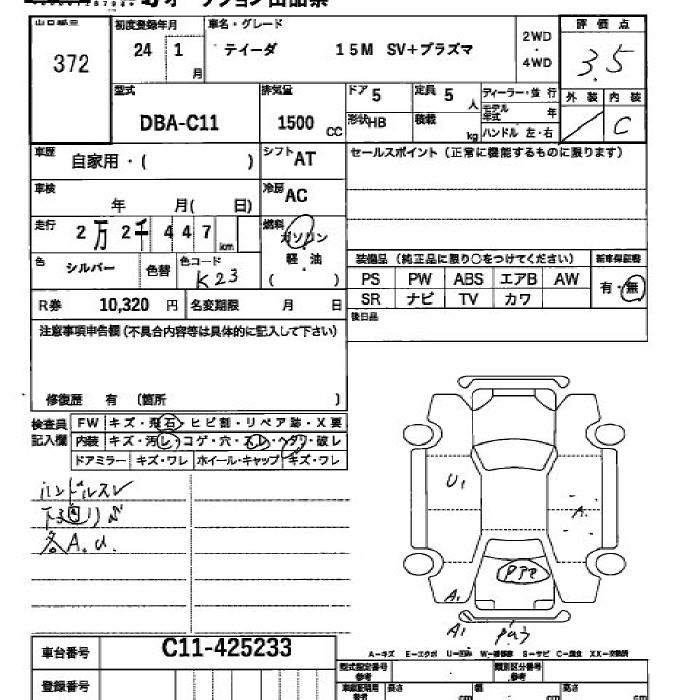 372
初度登録年月
24 1 月
車名・グレード
ティーダ 15M SV+プラズマ
2WD
・
4WD
評価点
3.5
型式
DBA-C11
排気量
1500 CC
ドア 5
定員 5 人
ディーラー・並行
モデル年式 年
外装 内装
C
形状 HB
積載 kg
ハンドル 左・右
車歴 自家用・( )
シフト AT
セールスポイント (正常に機能するものに限ります)
車検 年 月( 日)
冷房 AC
走行 2万2千447 km
燃料
ガソリン
・
軽油
( )
色 シルバー 色替 色コード K23
装備品 (純正品に限り○をつけてください)
新車保証書
PS PW ABS エアB AW
有・無
SR ナビ TV カワ
R券 10,320 円 名変期限 月 日
後日品
注意事項申告欄(不具合内容等は具体的に記入して下さい)
修復歴 有 (箇所 )
検査員記入欄
FW キズ・飛石・ヒビ割・リペア跡・X要
内装 キズ・汚レ・コゲ・穴・スレ・ヘタリ・破レ
ドアミラー キズ・ワレ ホイール・キャップ キズ・ワレ
ハンドルスレ
下廻りサビ
各A.U.
U1
A.
A1
A1
車台番号 C11-425233
A-キズ E-エクボ U-凹み W-補修跡 S-サビ C-腐食 XX-交換済
型式指定番号 参考
類別区分番号 参考
登録番号
車庫証明用 参考
長さ cm
幅 cm
高さ cm